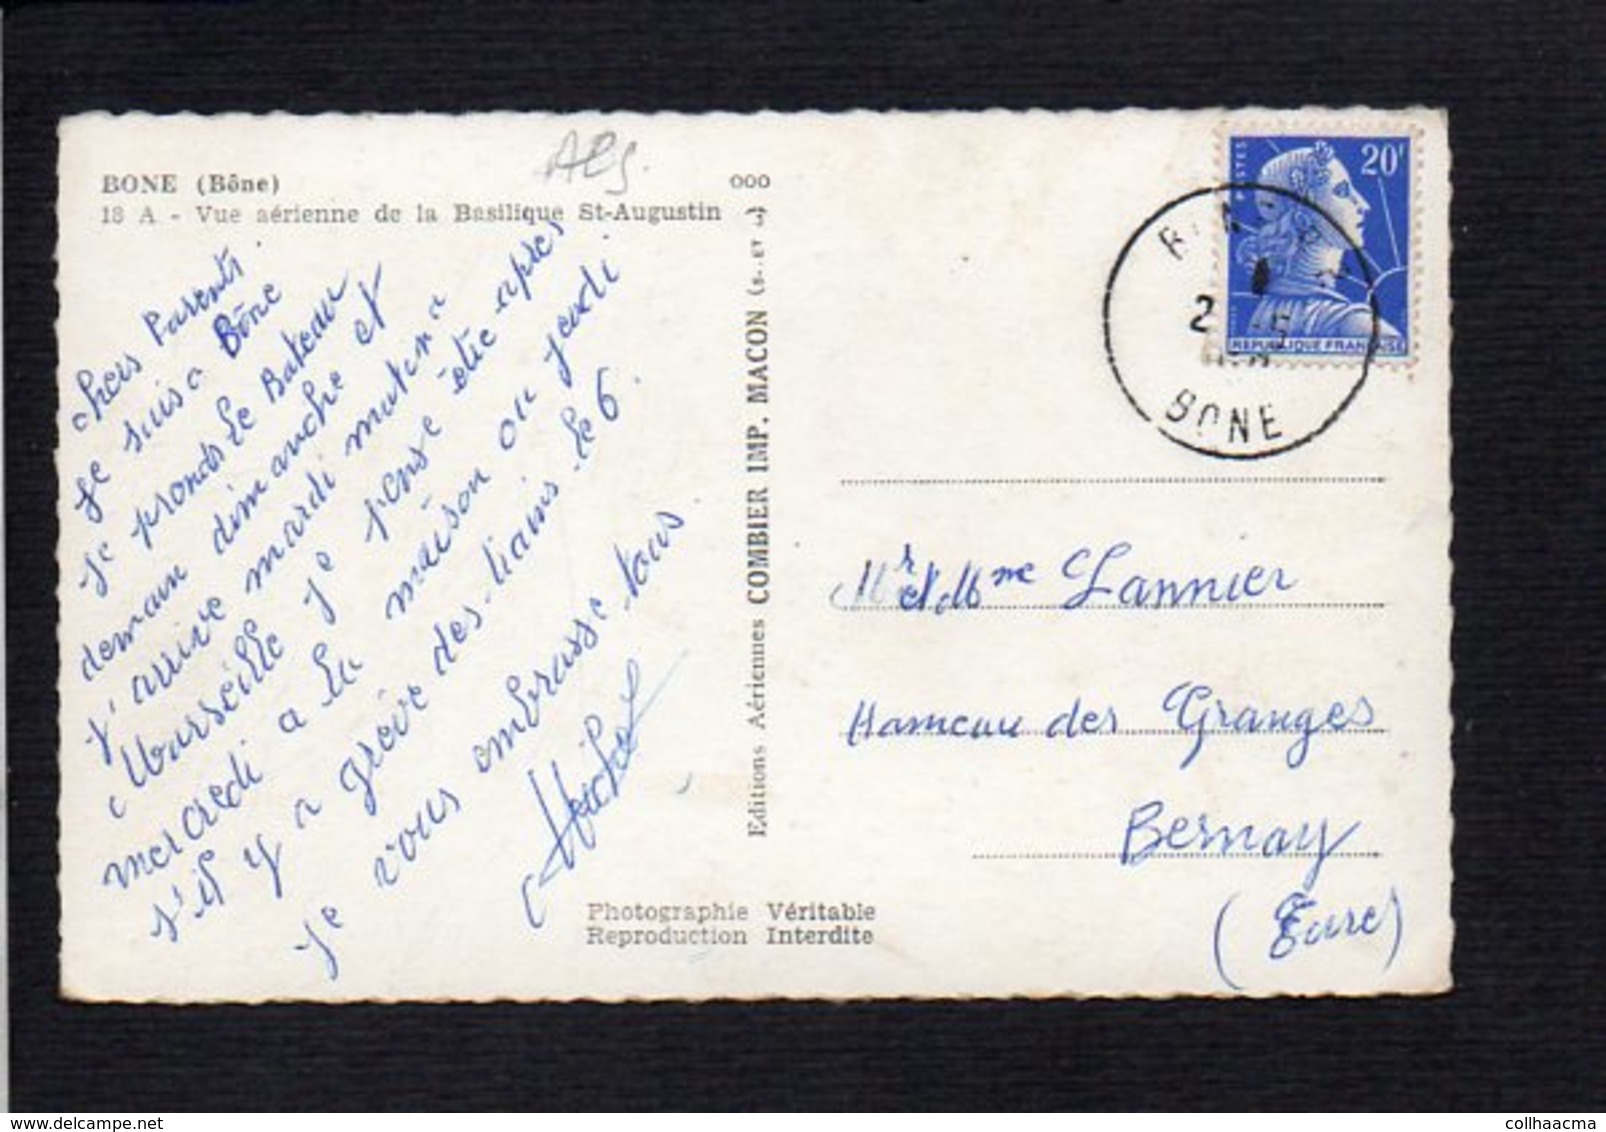 BONE (Bône)
18 A - Vue aérienne de la Basilique St-Augustin
Alg.
000
chers Parents.
je suis a Bône
je prends le Bateau
demain dimanche et
j'arrive mardi matin a
Marseille je pense être après
mercredi a la maison ou jeudi
s'il y a grève des trains le 6.
je vous embrasse tous.
Michel
Editions Aériennes COMBIER IMP. MACON
Photographie Véritable
Reproduction Interdite
POSTES
20F
REPUBLIQUE FRANÇAISE
2
BONE
Mr et Mme Lannier
Hameau des Granges
Bernay
(Eure)
collhaacma